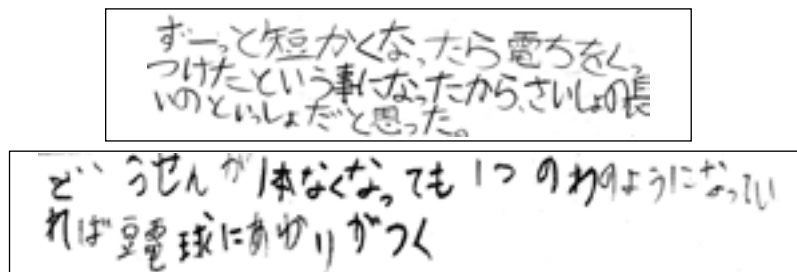 ずーっと短かくなったら電ちをくっ
つけたという事になったから、さいしょの長
いのといっしょだと思った。
どうせんが1本なくなっても1つのわのようになってい
れば豆電球にあかりがつく